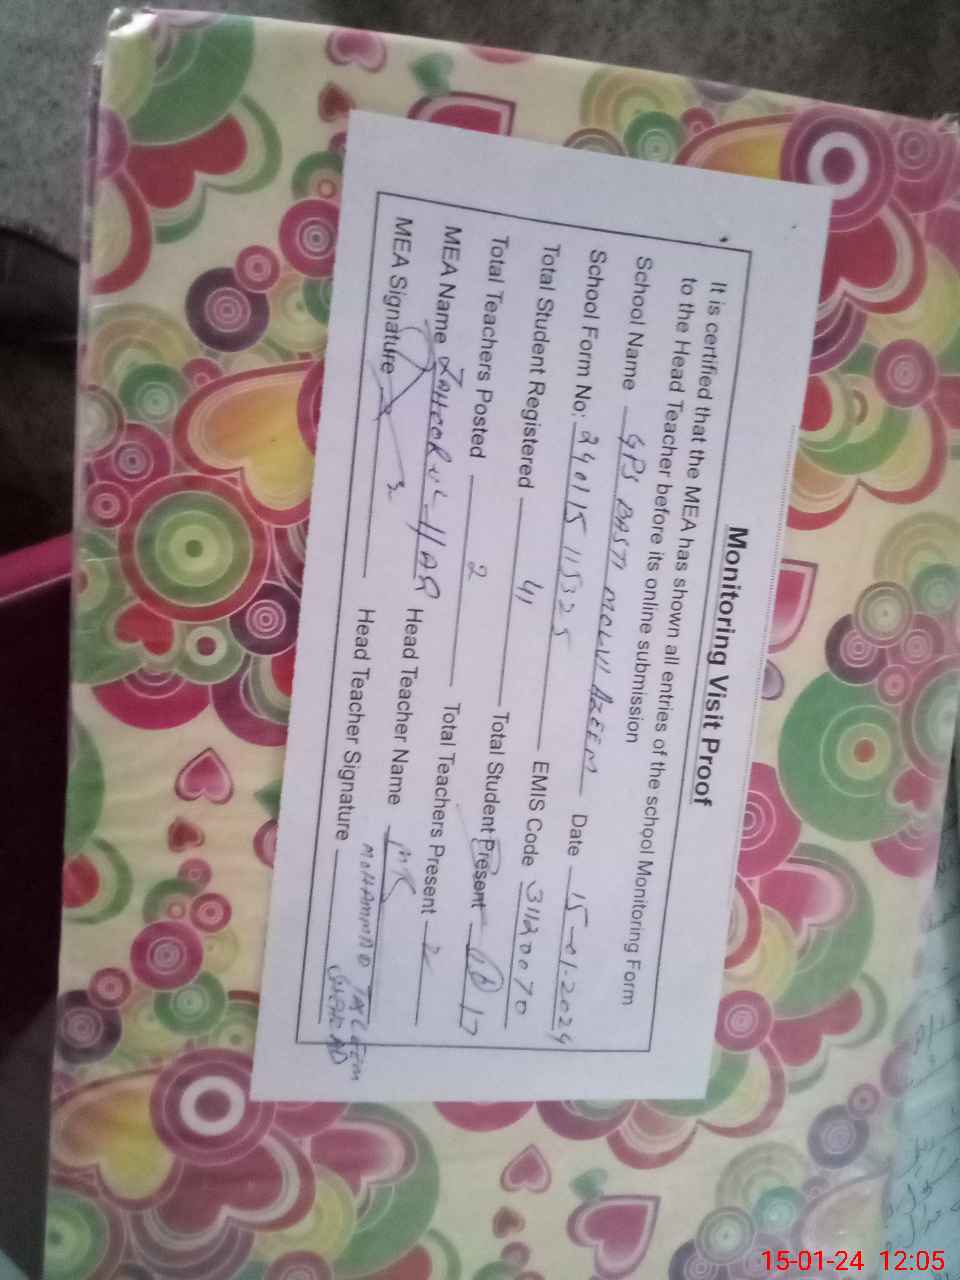 Monitoring Visit Proof
It is certified that the MEA has shown all entries of the school Monitoring Form
to the Head Teacher before its online submission
School Name GPS BASTI MOLVI AZEEM Date 15-01-2024
School Form No: 240115 115325 EMIS Code 31120070
Total Student Registered 41 Total Student Present 17
Total Teachers Posted 2 Total Teachers Present 2
MEA Name ZAHOOR UL HAQ Head Teacher Name
MOHAMMAD TAXLEEM
MEA Signature Head Teacher Signature
15-01-24 12:05